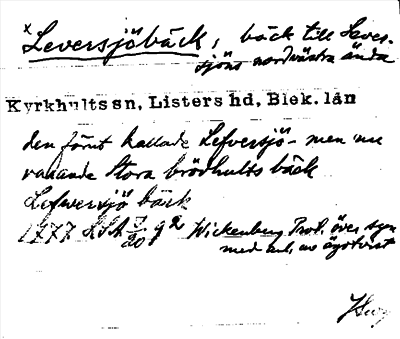 x Leversjöbäck, bäck till Lever-
sjöns nordvästra ända
Kyrkhults sn, Listers hd, Blek. län
den förut kallade Lefversjö- men nu
varande Stora brödhults bäck
Lefwersjö bäck
1777 LSA 7/20 g2 Wickenberg Prot. över syn
med anl. av ägotvist